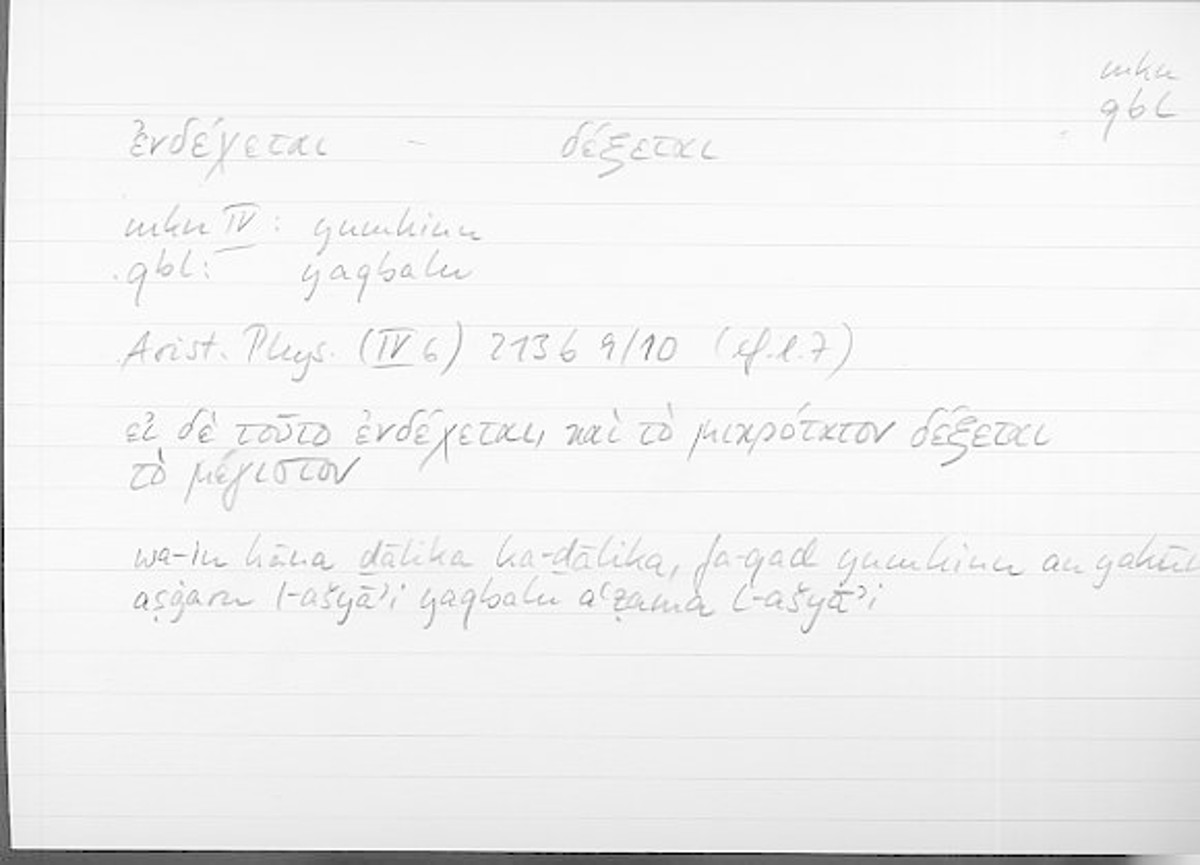 mkn
qbl
ἐνδέχεται – δέξεται
mkn IV: yumkinu
qbl: yaqbalu
Arist. Phys. (IV 6) 213b 9/10 (cf. l. 7)
εἰ δὲ τοῦτο ἐνδέχεται, καὶ τὸ μικρότατον δέξεται
τὸ μέγιστον
wa-in kāna ḏālika ka-ḏālika, fa-qad yumkinu an
aṣġaru l-ašyāʾi yaqbalu aʿẓama l-ašyāʾi